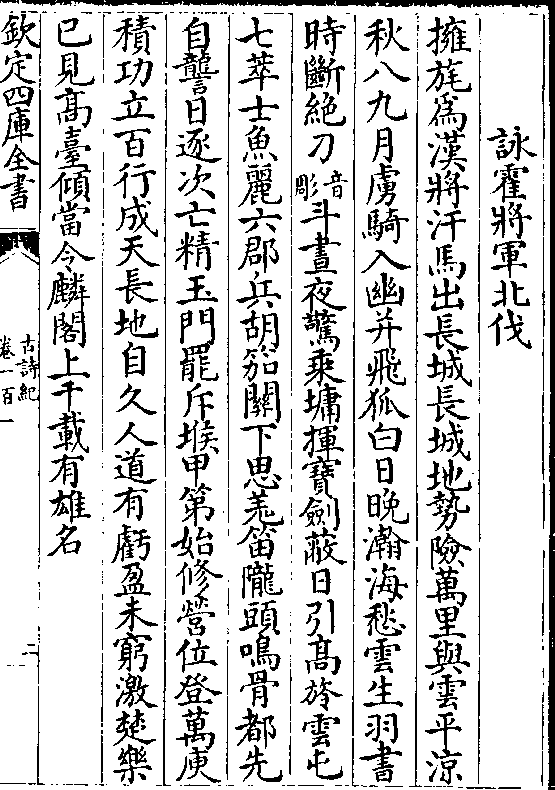 詠霍將軍北伐
擁旄爲漢將汗馬出長城長城地勢險萬里與雲平涼
秋八九月虜騎入幽并飛狐白日晚瀚海愁雲生羽書
時斷絶刀音彫斗晝夜驚乘墉揮寶劍蔽日引髙旍雲屯
七萃士魚麗六郡兵胡笳關下思羗笛隴頭鳴骨都先
自讋日逐次亡精玉門罷斥堠甲第始修營位登萬庾
積功立百行成天長地自久人道有虧盈未窮激楚樂
已見髙臺傾當令麟閣上千載有雄名
欽定四庫全書
古詩紀
卷一百一
二